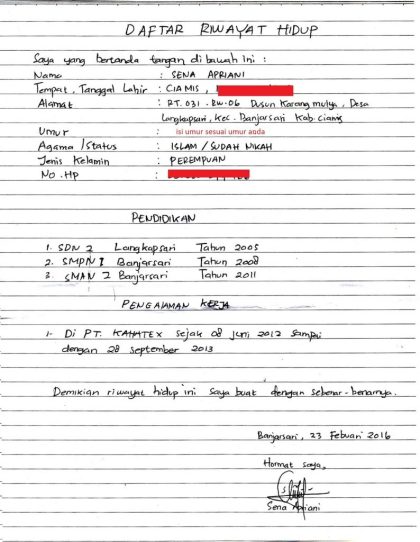 DAFTAR RIWAYAT HIDUP
Saya yang bertanda tangan di bawah ini :
Nama : SENA APRIANI
Tempat, Tanggal Lahir : CIAMIS,
Alamat : RT. 031 . RW. 06 Dusun Karang mulya, Desa
Langkapsari, Kec. Banjarsari Kab. Ciamis
Umur : isi umur sesuai umur anda
Agama /Status : ISLAM / SUDAH NIKAH
Jenis Kelamin : PEREMPUAN
No. HP :
PENDIDIKAN
1. SDN 2 Langkapsari Tahun 2005
2. SMPN 1 Banjarsari Tahun 2008
3. SMAN 2 Banjarsari Tahun 2011
PENGALAMAN KERJA
1- Di PT. KAHATEX sejak 08 juni 2012 sampai
dengan 28 September 2013
Demikian riwayat hidup ini saya buat dengan sebenar-benarnya.
Banjarsari, 23 Febuari 2016
Hormat saya,
Sena Apriani